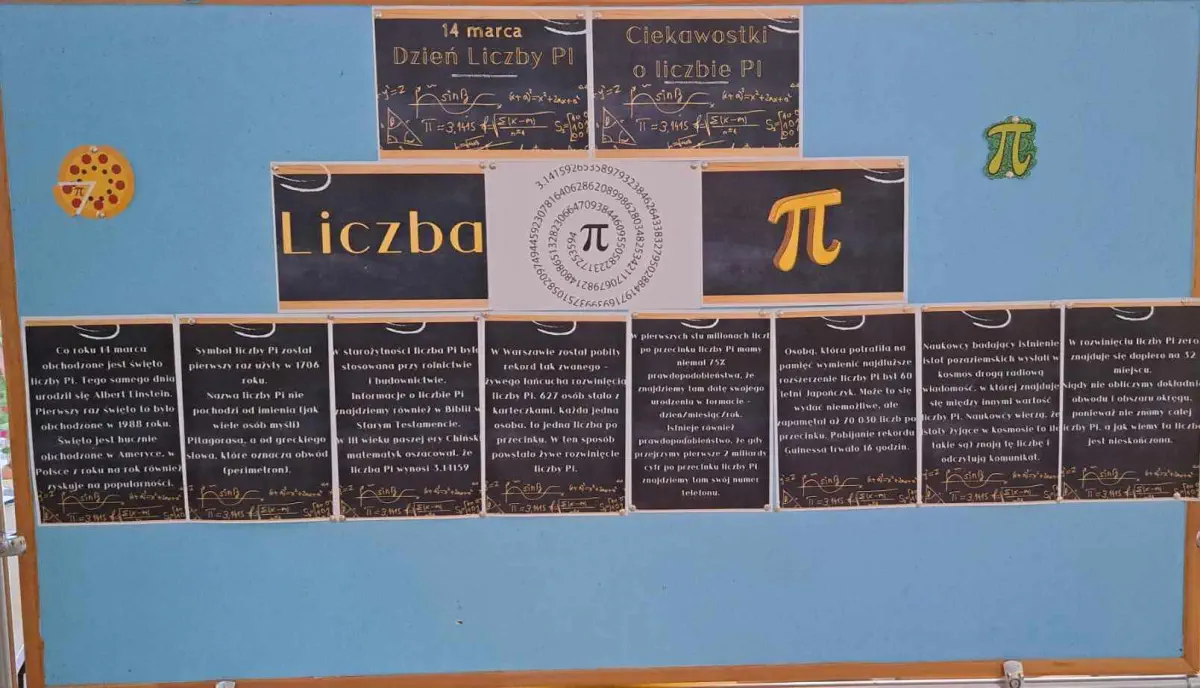 14 marca
Dzień Liczby PI
Ciekawostki
o liczbie PI
sinβ
(x+a)²=x²+2ax+a²
π=3,1415
sinβ
(x+a)²=x²+2ax+a²
π=3,1415
π
Liczba
π
π
π
Co roku 14 marca
obchodzone jest święto
liczby Pi. Tego samego dnia
urodził się Albert Einstein.
Pierwszy raz święto to było
obchodzone w 1988 roku.
Święto jest hucznie
obchodzone w Ameryce, w
Polsce z roku na rok również
zyskuje na popularności.
Symbol liczby Pi został
pierwszy raz użyty w 1706
roku.
Nazwa liczby Pi nie
pochodzi od imienia (jak
wiele osób myśli)
Pitagorasa, a od greckiego
słowa, które oznacza obwód
(perimetron).
W starożytności liczba Pi była
stosowana przy rolnictwie
i budownictwie.
Informacje o liczbie Pi
znajdziemy również w Biblii w
Starym Testamencie.
W III wieku naszej ery Chiński
matematyk oszacował, że
liczba Pi wynosi 3.14159
W Warszawie został pobity
rekord tak zwanego -
żywego łańcucha rozwinięcia
liczby Pi. 627 osób stało z
karteczkami, każda jedna
osoba, to jedna liczba po
przecinku. W ten sposób
powstało żywe rozwinięcie
liczby Pi.
W pierwszych stu milionach liczb
po przecinku liczby Pi mamy
niemal 75%
prawdopodobieństwa, że
znajdziemy tam datę swojego
urodzenia w formacie -
dzień/miesiąc/rok.
Istnieje również
prawdopodobieństwo, że gdy
przejrzymy pierwsze 2 miliardy
cyfr po przecinku liczby Pi
znajdziemy tam swój numer
telefonu.
Osobą, która potrafiła na
pamięć wymienić najdłuższe
rozszerzenie liczby Pi był 60
letni Japończyk. Może to się
wydać niemożliwe, ale
zapamiętał aż 70 030 liczb po
przecinku. Pobijanie rekordu
Guinessa trwało 16 godzin.
Naukowcy badający istnienie
istot pozaziemskich wysłali w
kosmos drogą radiową
wiadomość, w której znajduje
się między innymi wartość
liczby Pi. Naukowcy wierzą, że
istoty żyjące w kosmosie (o ile
takie są) znają tę liczbę i
odczytują komunikat.
W rozwinięciu liczby Pi zero
znajduje się dopiero na 32
miejscu.
Nigdy nie obliczymy dokładnie
obwodu i obszaru okręgu,
ponieważ nie znamy całej
liczby Pi, a jak wiemy ta liczba
jest nieskończona.